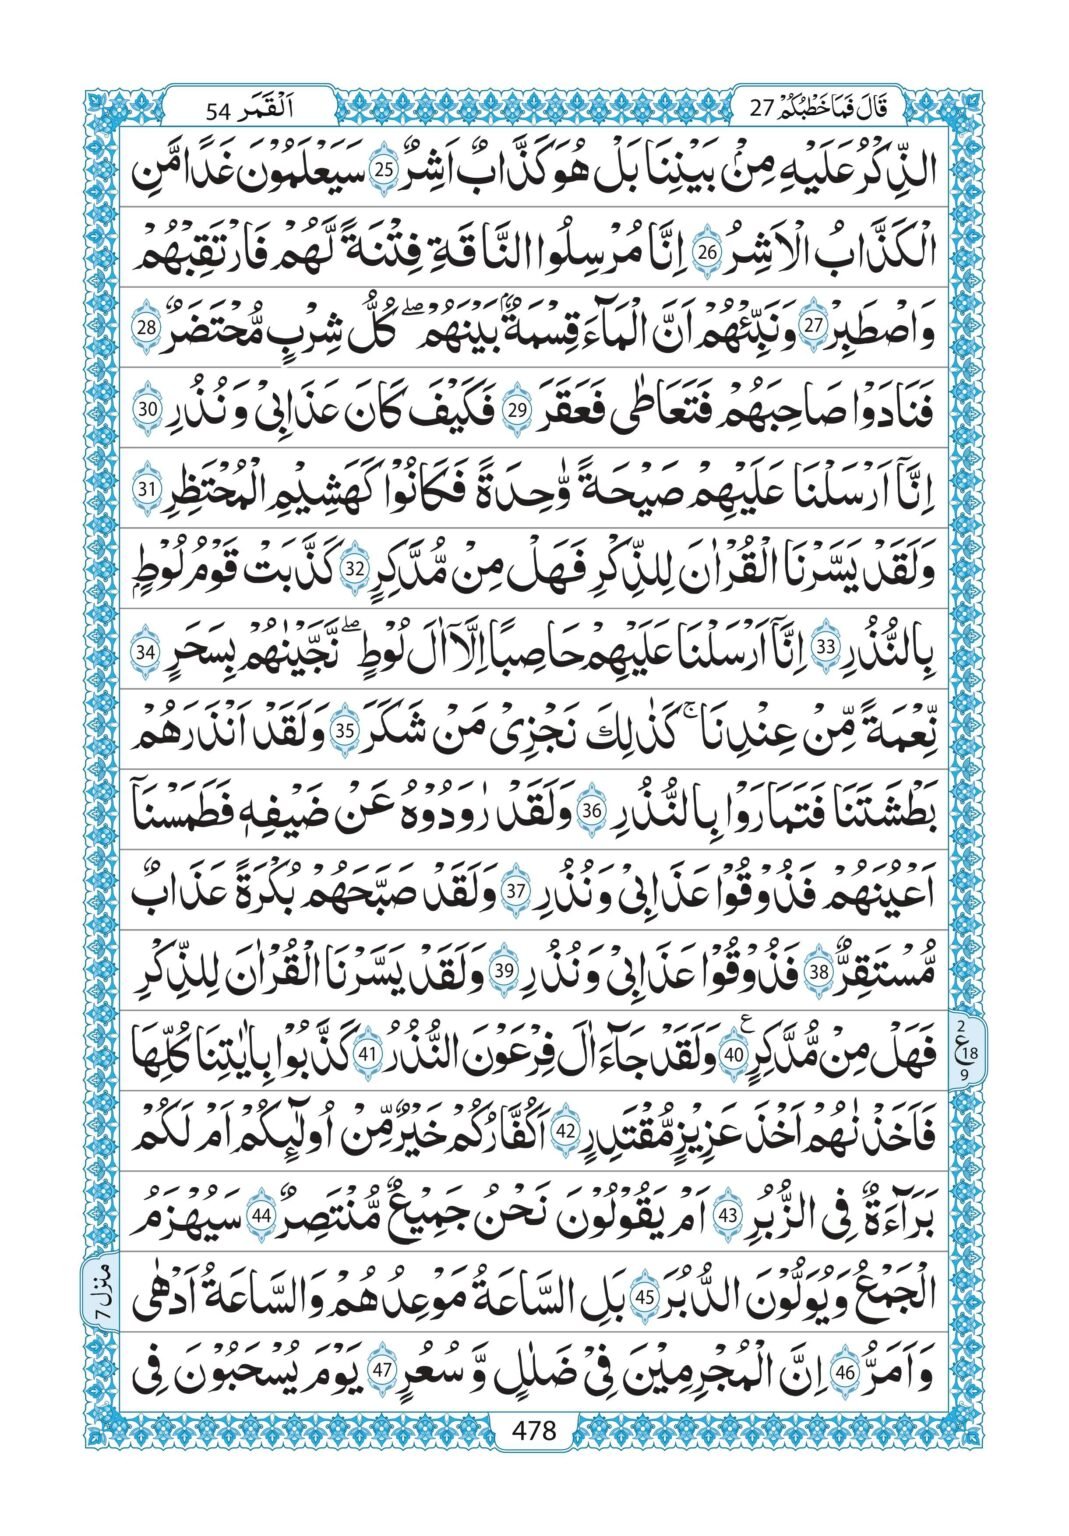 قَالَ فَمَا خَطْبُكُمْ 27
اَلْقَمَر 54
الذِّكْرُ عَلَيْهِ مِنْۢ بَيْنِنَا بَلْ هُوَ كَذَّابٌ اَشِرٌ 25 سَيَعْلَمُوْنَ غَدًا مَّنِ
الْكَذَّابُ الْاَشِرُ 26 اِنَّا مُرْسِلُوا النَّاقَةِ فِتْنَةً لَّهُمْ فَارْتَقِبْهُمْ
وَاصْطَبِرْ 27 وَنَبِّئْهُمْ اَنَّ الْمَآءَ قِسْمَةٌۢ بَيْنَهُمْ ۖ كُلُّ شِرْبٍ مُّحْتَضَرٌ 28
فَنَادَوْا صَاحِبَهُمْ فَتَعَاطٰى فَعَقَرَ 29 فَكَيْفَ كَانَ عَذَابِيْ وَنُذُرِ 30
اِنَّآ اَرْسَلْنَا عَلَيْهِمْ صَيْحَةً وّٰحِدَةً فَكَانُوْا كَهَشِيْمِ الْمُحْتَظِرِ 31
وَلَقَدْ يَسَّرْنَا الْقُرْاٰنَ لِلذِّكْرِ فَهَلْ مِنْ مُّدَّكِرٍ 32 كَذَّبَتْ قَوْمُ لُوْطٍۭ
بِالنُّذُرِ 33 اِنَّآ اَرْسَلْنَا عَلَيْهِمْ حَاصِبًا اِلَّآ اٰلَ لُوْطٍ ۖ نَّجَّيْنٰهُمْ بِسَحَرٍ 34
نِّعْمَةً مِّنْ عِنْدِنَا ۚ كَذٰلِكَ نَجْزِيْ مَنْ شَكَرَ 35 وَلَقَدْ اَنْذَرَهُمْ
بَطْشَتَنَا فَتَمَارَوْا بِالنُّذُرِ 36 وَلَقَدْ رٰوَدُوْهُ عَنْ ضَيْفِهٖ فَطَمَسْنَآ
اَعْيُنَهُمْ فَذُوْقُوْا عَذَابِيْ وَنُذُرِ 37 وَلَقَدْ صَبَّحَهُمْ بُكْرَةً عَذَابٌ
مُّسْتَقِرٌّ 38 فَذُوْقُوْا عَذَابِيْ وَنُذُرِ 39 وَلَقَدْ يَسَّرْنَا الْقُرْاٰنَ لِلذِّكْرِ
فَهَلْ مِنْ مُّدَّكِرٍ 40 ع وَلَقَدْ جَآءَ اٰلَ فِرْعَوْنَ النُّذُرُ 41 كَذَّبُوْا بِاٰيٰتِنَا كُلِّهَا
2
ع 18
9
فَاَخَذْنٰهُمْ اَخْذَ عَزِيْزٍ مُّقْتَدِرٍ 42 اَكُفَّارُكُمْ خَيْرٌ مِّنْ اُولٰٓئِكُمْ اَمْ لَكُمْ
بَرَآءَةٌ فِي الزُّبُرِ 43 اَمْ يَقُوْلُوْنَ نَحْنُ جَمِيْعٌ مُّنْتَصِرٌ 44 سَيُهْزَمُ
الْجَمْعُ وَيُوَلُّوْنَ الدُّبُرَ 45 بَلِ السَّاعَةُ مَوْعِدُهُمْ وَالسَّاعَةُ اَدْهٰى
منزل 7
وَاَمَرُّ 46 اِنَّ الْمُجْرِمِيْنَ فِيْ ضَلٰلٍ وَّسُعُرٍ 47 يَوْمَ يُسْحَبُوْنَ فِي
478